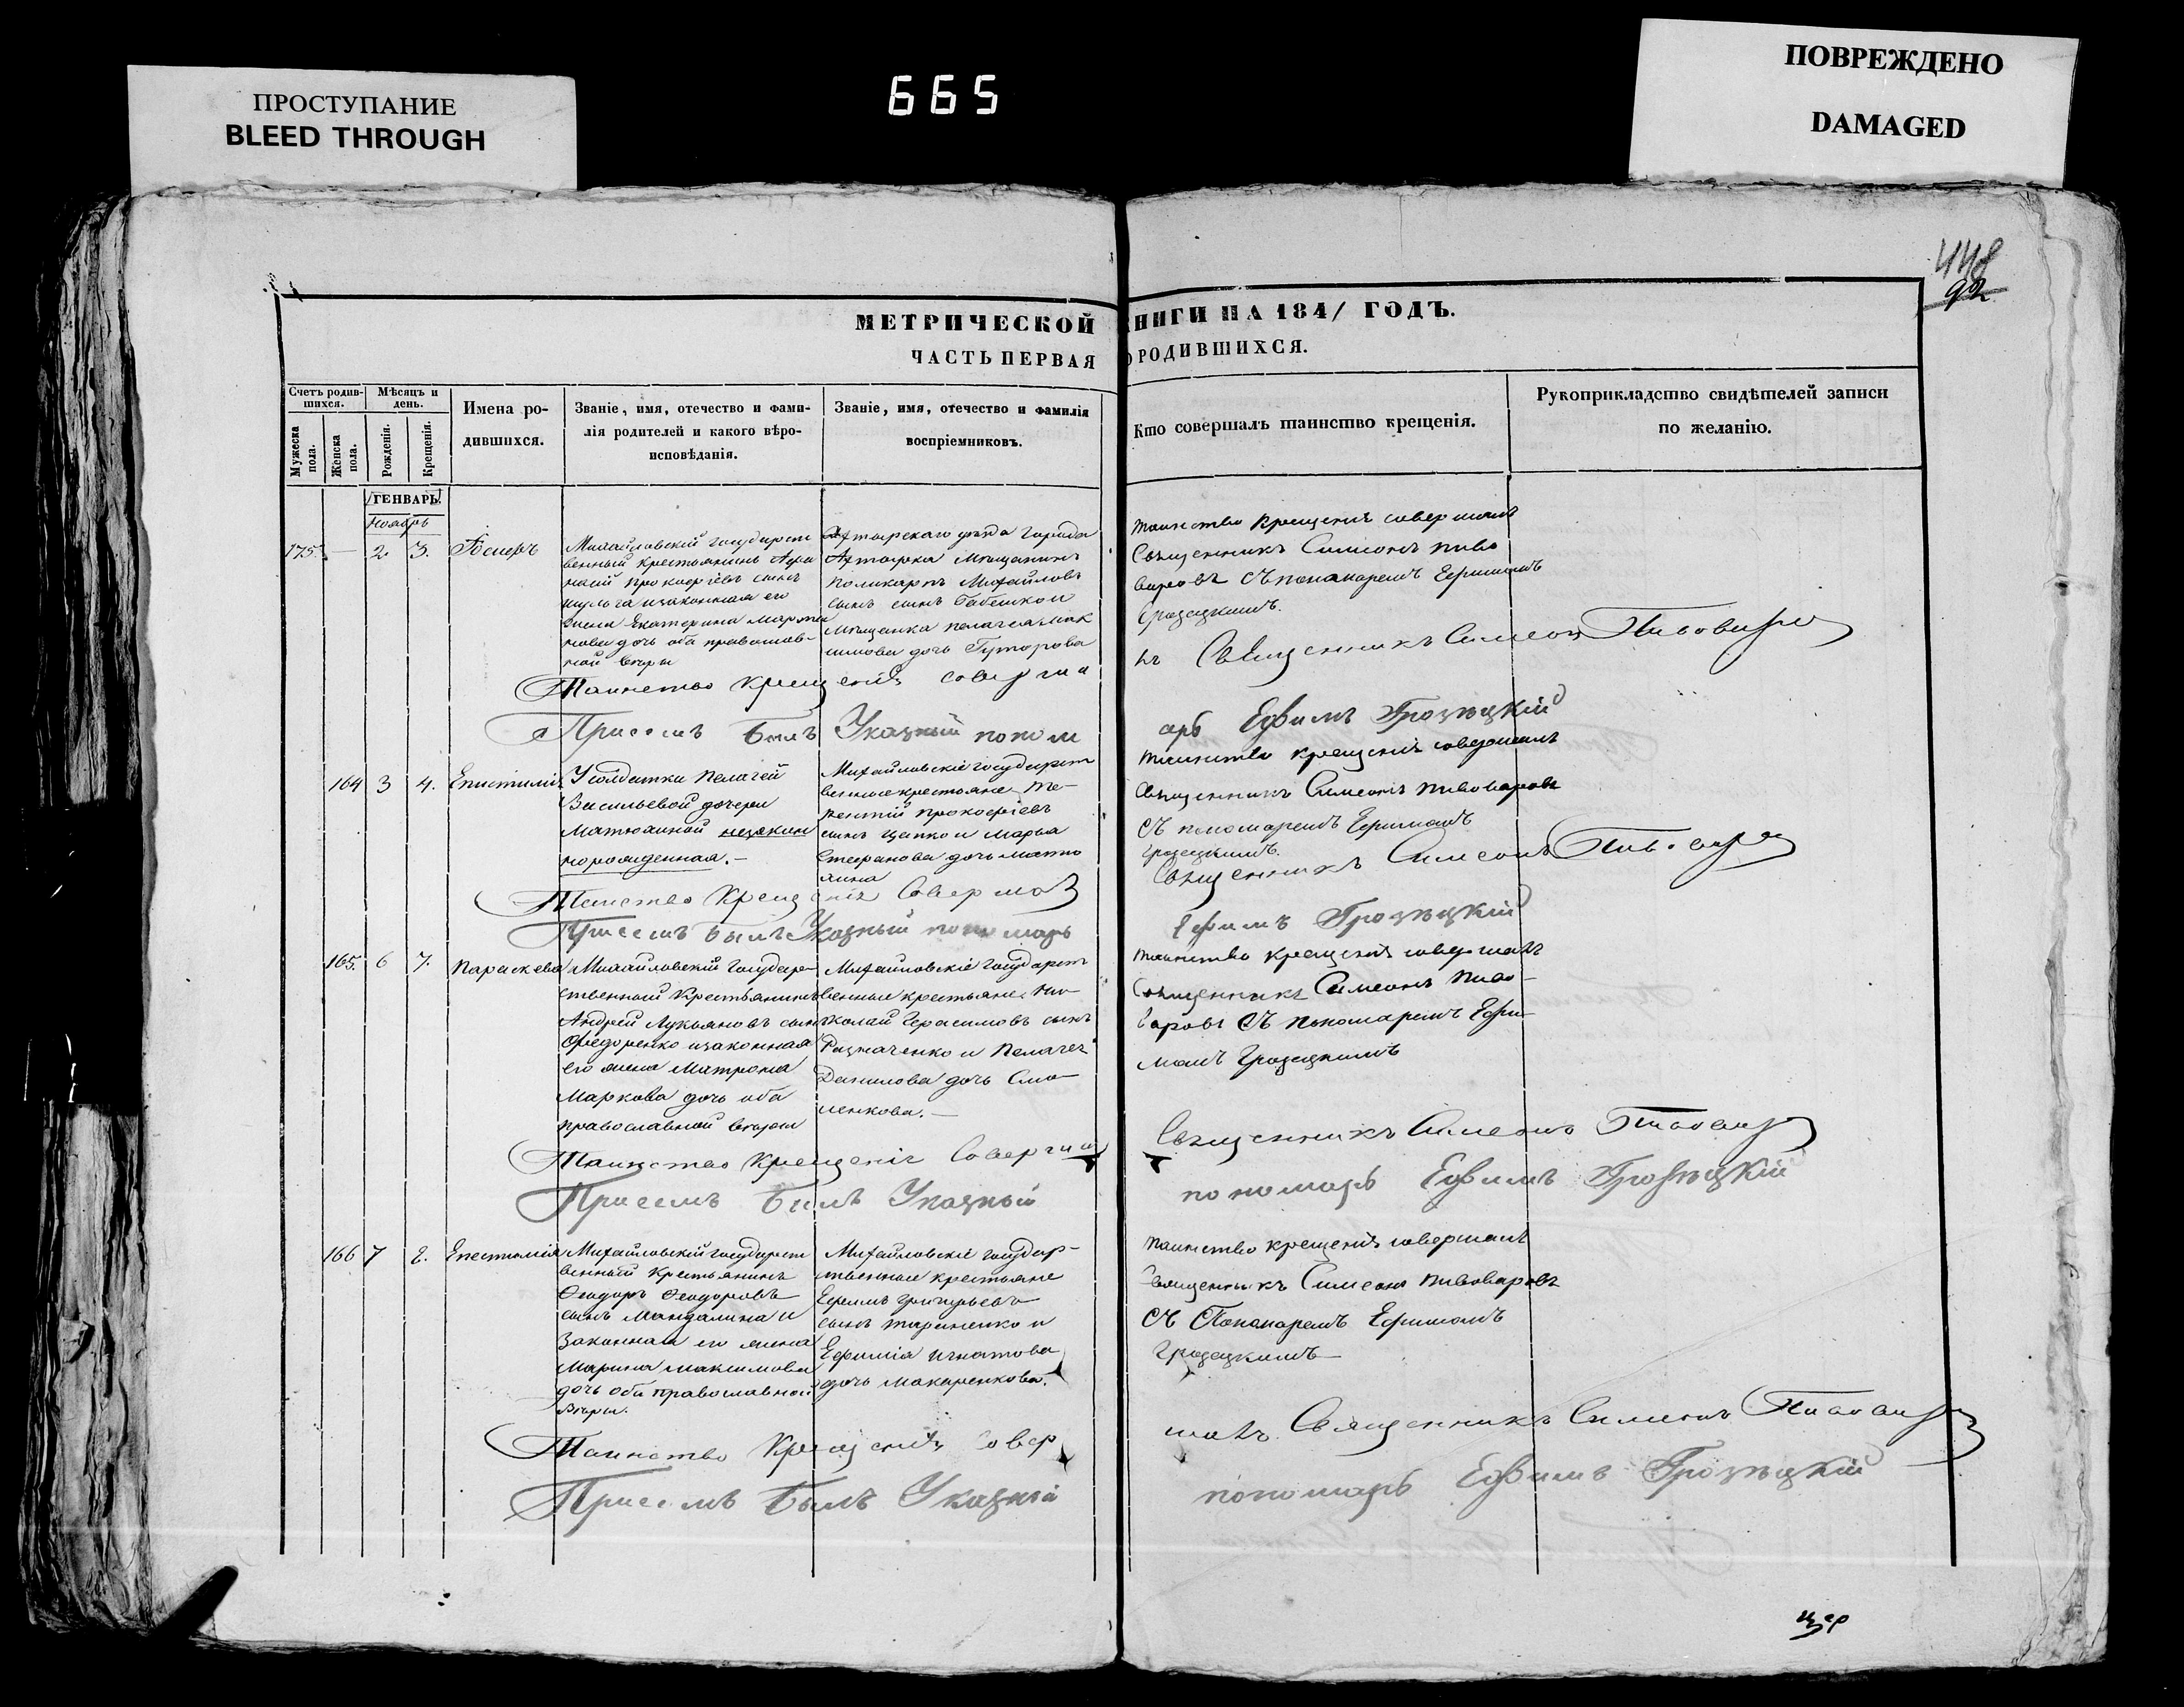 ПРОСТУПАНИЕ
BLEED THROUGH
665
ПОВРЕЖДЕНО
DAMAGED
448
92
МЕТРИЧЕСКОЙ КНИГИ НА 1841 ГОДЪ.
ЧАСТЬ ПЕРВАЯ О РОДИВШИХСЯ.
Счетъ родив-
шихся.
Мужеска
пола.
Женска
пола.
Мѣсяцъ и
день.
Рожденія.
Крещенія.
Имена ро-
дившихся.
Званіе, имя, отечество и фами-
лія родителей и какого вѣро-
исповѣданія.
Званіе, имя, отечество и фамилія
воспріемниковъ.
Кто совершалъ таинство крещенія.
Рукоприкладство свидѣтелей записи
по желанію.
ГЕНВАРЬ.
Ноябрь
175. — 2 3.
Михайловскій государст
венный крестьянинъ
Прокофіевъ сынъ
изаконная его
жена Екатерина
дочь оба православ-
ной вѣры
Ахтырскаго уѣзда города
Ахтырка Мѣщанинъ
Поликарпъ Михайловъ
сынъ
Мѣщанка пелагея мак
симова дочь
таинство крещенія совершалъ
Священникъ Симеонъ пиво
варовъ Съ пономаремъ Ефимомъ
Грозецкимъ.
Таинство крещенія соверша
лъ Священникъ Симеонъ Пивоваровъ
При семъ былъ Указный поном
арь Ефимъ Грозецкій
164 3 4. Епистимія
Усолдатки Пелагеи
Васильевой дочери
Матюхиной незакон
норожденная.—
Михайловскіе государст
венные крестьяне Те-
рентій прокофіевъ
сынъ Цапко и Марья
Стефанова дочь матю
хина
таинство крещенія совершалъ
Священникъ Симеонъ пивоваровъ
Съ пономаремъ Ефимомъ
Грозецкимъ.
Таинство Крещенія Совершалъ
Священникъ Симеонъ Пивоваровъ
При семъ былъ Указный пономарь
Ефимъ Грозецкій
165. 6 7. Параскева
Михайловскій государ-
ственный Крестьянинъ
Андрей Лукьяновъ сынъ
Федоренко изаконная
его жена Матрона
Маркова дочь оба
православной вѣры
Михайловскіе государст
венные крестьяне Ни-
колай Герасимовъ сынъ
и Пелагея
Данилова дочь Сма-
ленкова.—
таинство крещенія совершалъ
Священникъ Симеонъ Пиво-
варовъ Съ пономаремъ Ефи-
момъ Грозецкимъ
Таинство Крещенія Соверши
Священникъ Симеонъ Пивоваровъ
При семъ былъ Указный
пономарь Ефимъ Грозецкій
166 7 8. Епестимія
Михайловскій государст
венный Крестьянинъ
Феодоръ Феодоровъ
сынъ Мандалина и
Законная его жена
Марина максимова
дочь оба православной
Вѣры.
Михайловскіе государ-
ственные крестьяне
Ефимъ Григорьевъ
сынъ и
Ефимія игнатова
дочь Макаренкова.
таинство крещенія совершалъ
Священникъ Симеонъ пивоваровъ
Съ Пономаремъ Ефимомъ
Грозецкимъ—
Таинство Крещенія Совер
шалъ Священникъ Симеонъ Пивоваровъ
При семъ былъ Указный
пономарь Ефимъ Грозецкій